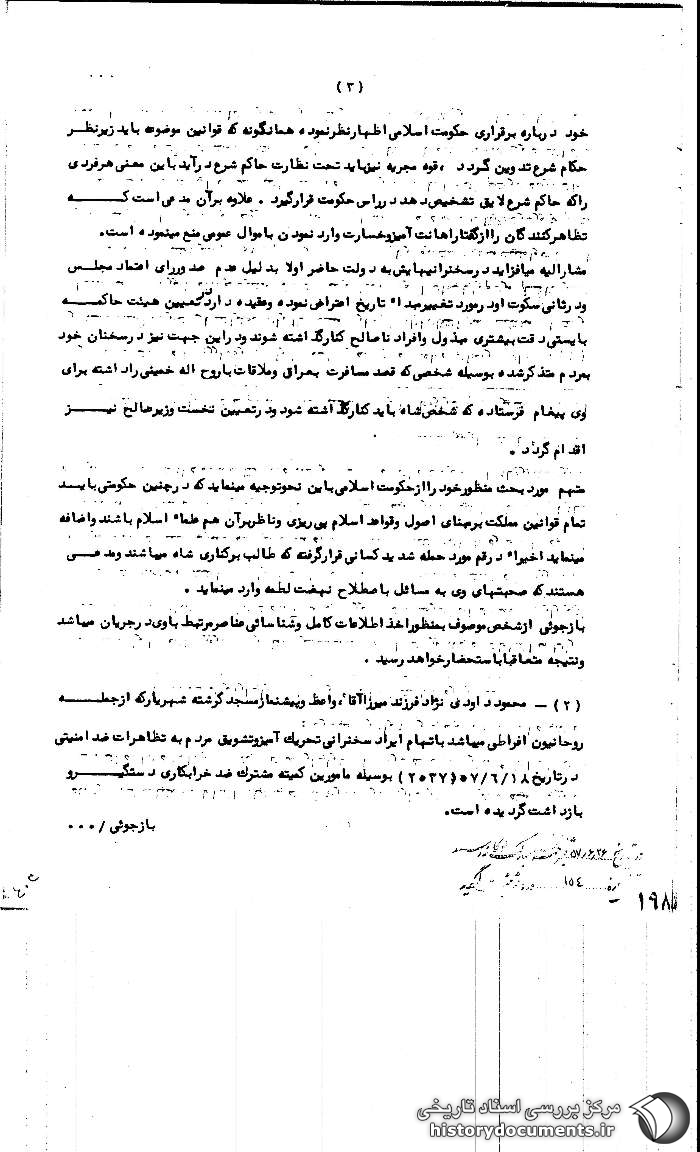 (۳)
خود درباره برقراری حکومت اسلامی اظهارنظرنموده همانگونه که قوانین موضوعه بایدزیرنظر
حکام شرع تدوین گردد ، قوه مجریه نیزباید تحت نظارت حاکم شرع درآید باین معنی هرفردی
راکه حاکم شرع لایق تشخیص دهد درراس حکومت قرارگیرد . علاوه برآن مدعی است کـــه
تظاهرکنندگان راازگفتاراهانت آمیزوخسارت وارد نمودن باموال عمومی منع مینموده است.
مشارالیه میافزاید درسخنرانیهایش به دولت حاضر اولا بدلیل عدم صدوررای اعتماد مجلس
ودرثانی سکوت اودرمورد تغییرمبداء تاریخ اعتراض نموده وعقیده دارددرتعیین هیئت حاکمـه
بایستی دقت بیشتری مبذول وافراد ناصالح کنارگذاشته شوند ودراین جهت نیز درسخنان خود
بمردم متذکرشده بوسیله شخصی که قصد مسافرت بعراق وملاقات باروح اله خمینی راداشته برای
وی پیغام فرستاده که شخص شاه باید کنارگذاشته شود ودرتعیین نخست وزیرصالح نیـــز
اقدام گردد .
متهم مورد بحث منظورخود راازحکومت اسلامی باین نحوتوجیه مینماید که درچنین حکومتی بایسد
تمام قوانین مملکت برمبنای اصول وقواعد اسلام پی ریزی وناظربرآن هم علماء اسلام باشند واضافه
مینماید اخیراء درقم مورد حمله شدید کسانی قرارگرفته که طالب برکناری شاه میباشند ومدعـی
هستندکه صحبتهای وی به مسائل باصطلاح نهضت لطمه وارد مینماید .
بازجوئی ازشخص موصوف بمنظوراخذ اطلاعات کامل وشناسائی عناصرمرتبط باوی درجریان میباشد
ونتیجه متعاقبا باستحضارخواهد رسید .
(۲) – محمود داودی نژاد فرزند میرزاآقا ، واعظ وپیشنمازمسجد گرشته شهریارکه ازجملـــه
روحانیون افراطی میباشد باتهام ایراد سخنرانی تحریک آمیزوتشویق مردم به تظاهرات ضدامنیتی
درتاریخ ۵۷/۶/۱۸ (۲۵۳۷) بوسیله مامورین کمیته مشترک ضد خرابکاری دستگیــرو
بازداشت گردیده است.
بازجوئی / ...
۱۵۴
۱۹۸
مرکز بررسی اسناد تاریخی
historydocuments.ir